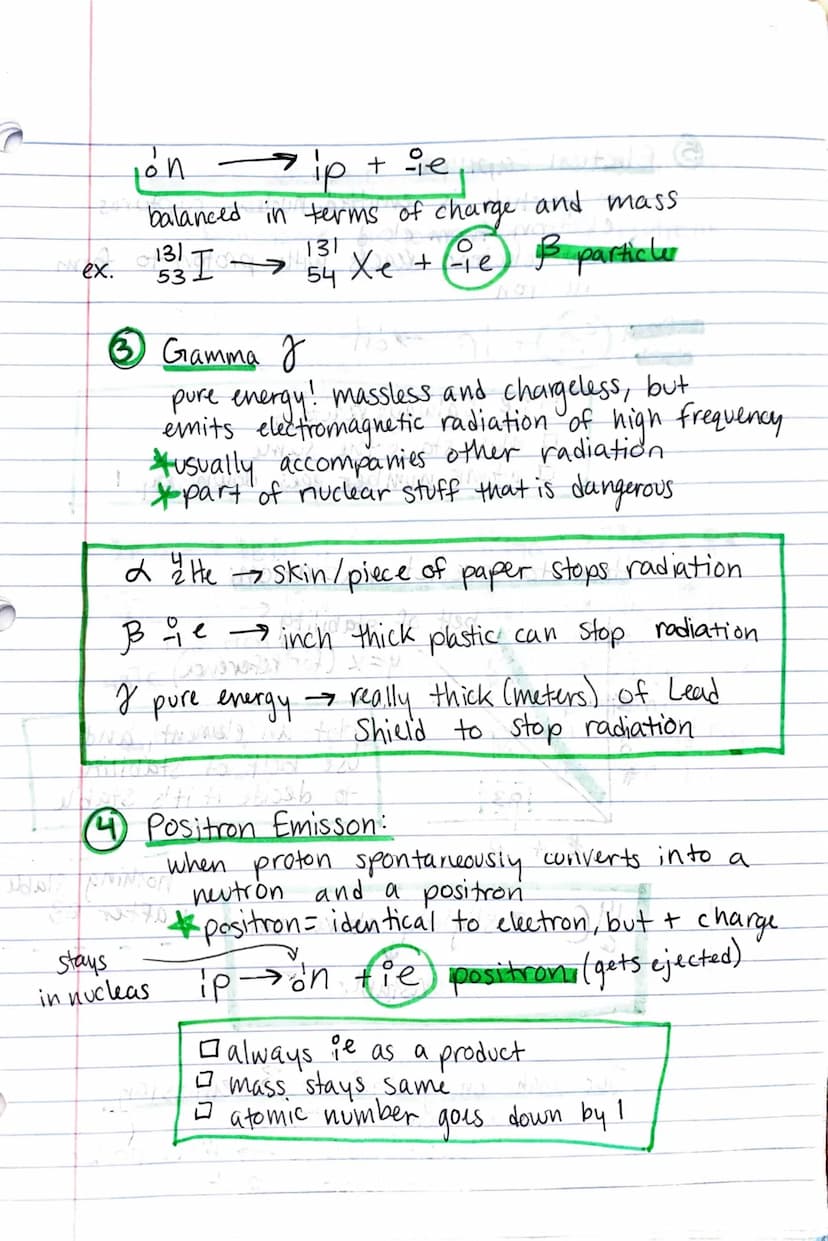 ¹₀n → ¹₁p + ⁰₋₁e
balanced in terms of charge and mass
ex. ¹³¹₅₃I → ¹³¹₅₄Xe + ⁰₋₁e β particle
③ Gamma γ
pure energy! massless and chargeless, but
emits electromagnetic radiation of high frequency
*usually accompanies other radiation
*part of nuclear stuff that is dangerous
α ⁴₂He → skin/piece of paper stops radiation
β ⁰₋₁e → inch thick plastic can stop radiation
γ pure energy → really thick (meters) of Lead
Shield to stop radiation
④ Positron Emisson:
when proton spontaneously converts into a
neutron and a positron
*positron= identical to electron, but + charge
stays
in nucleas
¹₁p → ¹₀n + ⁰₁e positron (gets ejected)
□ always ⁰₁e as a product
□ mass stays same
□ atomic number goes down by 1